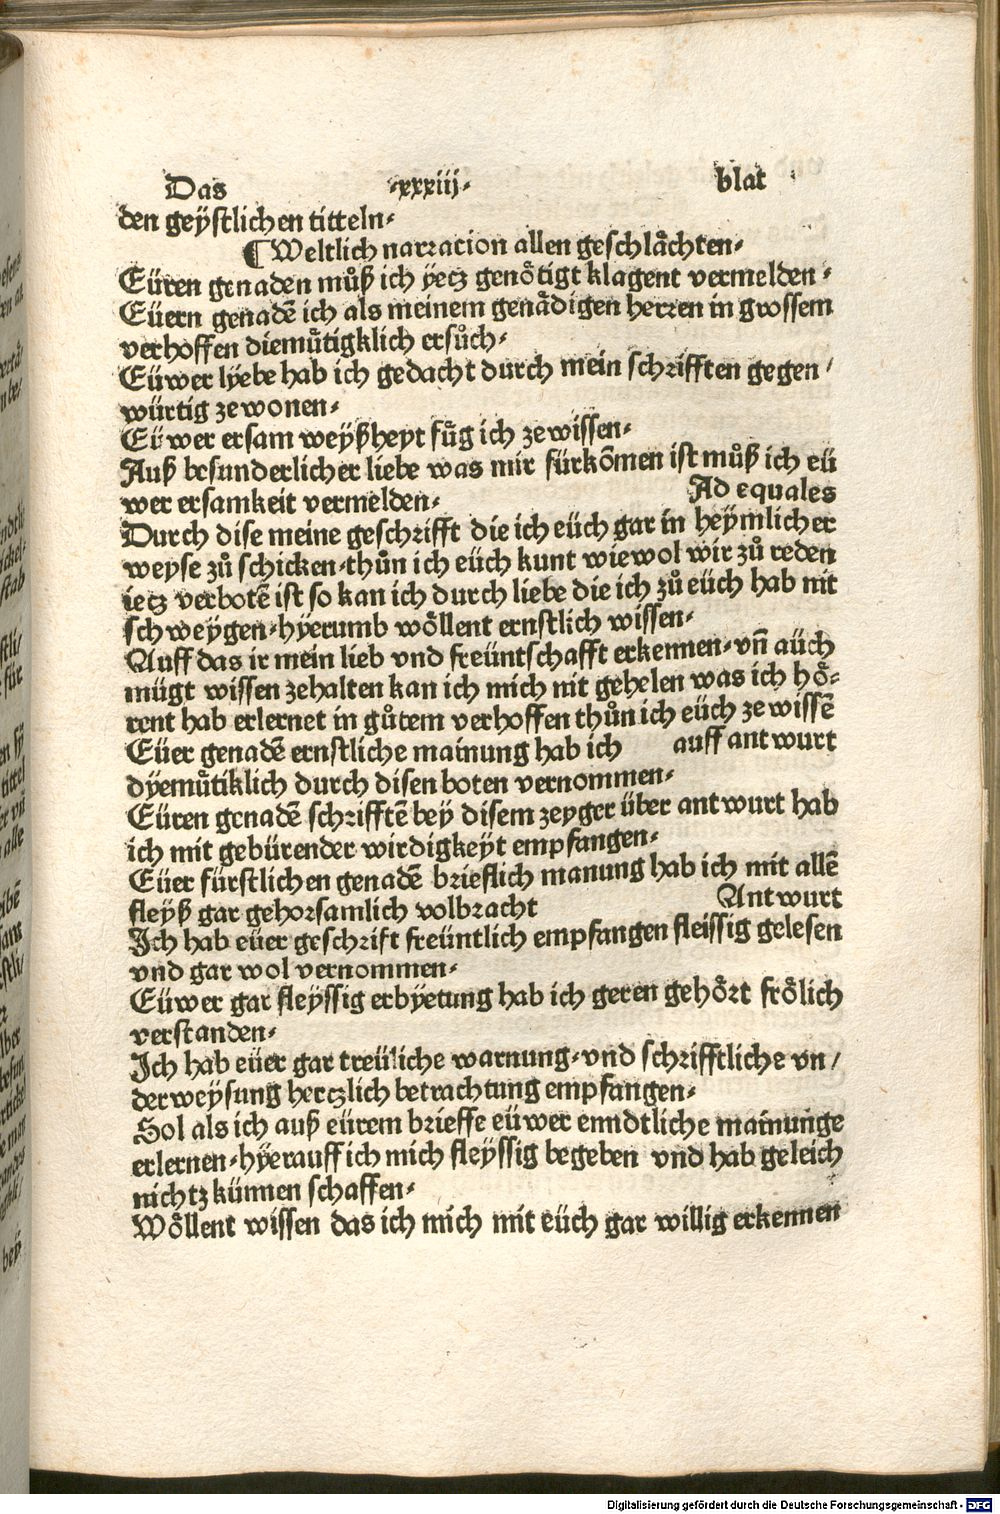 Das .xxxiij. blat
den geÿstlichen titteln.
¶ Weltlich narration allen geschlåchten.
Eüren genaden můß ich ÿetz genötigt klagent vermelden.
Eüern genadẽ ich als meinem genådigen herren in grossem
verhoffen diemůtigklich ersůch.
Eüwer lÿebe hab ich gedacht durch mein schrifften gegen
würtig ze wonen.
Eüwer ersam weÿßheyt fůg ich ze wissen.
Auß besunderlicher liebe was mir fürkõmen ist můß ich eü
wer ersamkeit vermelden. Ad equales
Durch dise meine geschrifft die ich eüch gar in heÿmlicher
weyse zů schicken.thůn ich eüch kunt wiewol wir zů reden
ietz verbotẽ ist so kan ich durch liebe die ich zů eüch hab nit
schweÿgen.hÿerumb wöllent ernstlich wissen.
Auff das ir mein lieb vnd freüntschafft erkennen.vñ aüch
mügt wissen zehalten kan ich mich nit gehelen was ich hö-
rent hab erlernet in gůtem verhoffen thůn ich eüch ze wissẽ
Eüer genadẽ ernstliche mainung hab ich auff antwurt
dÿemůtiklich durch disen boten vernommen.
Eüren genadẽ schrifftẽ beÿ disem zeyger über antwurt hab
ich mit gebürender wirdigkeÿt empfangen.
Eüer fürstlichen genadẽ brieflich manung hab ich mit allẽ
fleÿß gar gehorsamlich volbracht Antwurt
Ich hab eüer geschrift freüntlich empfangen fleissig gelesen
vnd gar wol vernommen.
Eüwer gar fleÿssig erbÿetung hab ich geren gehört frölich
verstanden.
Ich hab eüer gar treüliche warnung.vnd schrifftliche vn/
derweÿsung hertzlich betrachtung empfangen.
Sol als ich auß eürem brieffe eüwer enndtliche mainunge
erlernen.hÿerauff ich mich fleÿssig begeben vnd hab geleich
nichtz künnen schaffen.
Wöllent wissen das ich mich mit eüch gar willig erkennen
Digitalisierung gefördert durch die Deutsche Forschungsgemeinschaft - DFG